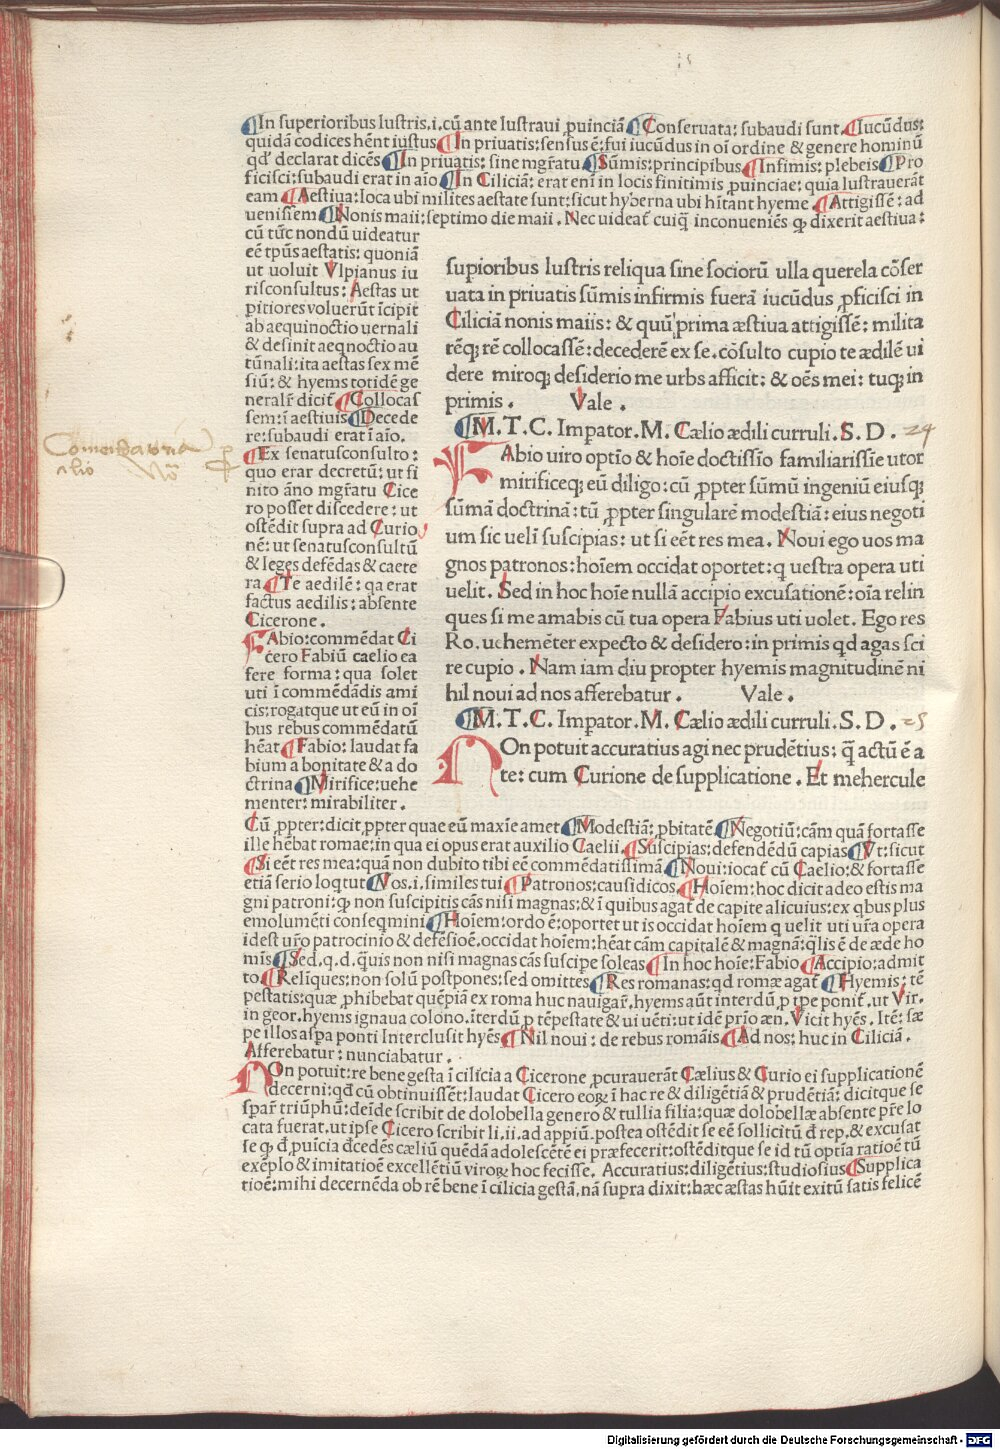 ¶In superioribus lustris.i.cū ante lustraui ꝓuinciā¶Conseruata: subaudi sunt.¶Iucūdus:
quidā codices hēnt iustus¶In priuatis: sensus ē: fui iucūdus in oī ordine & genere hominū
qd' declarat dicēs¶In priuatis: sine mgr̄atu¶Sūmis: principibus¶Infimis: plebeis¶Pro
ficisci: subaudi erat in aīo¶In Ciliciā: erat enī in locis finitimis ꝓuinciae: quia lustrauerāt
eam¶Aestiua: loca ubi milites aestate sunt: sicut hyberna ubi hītant hyeme.¶Attigissē: ad
uenissem¶Nonis maii: septimo die maii. Nec uideat̄ cuiq̄ inconueniēs ꝙ dixerit aestiua:
cū tūc nondū uideatur
eē tp̄us aestatis: quoniā
ut uoluit Vlpianus iu
risconsultus: Aestas ut
pitiores voluerūt īcipit
ab aequinoctio uernali
& desinit aeqnoctio au
tūnali: ita aestas sex mē
siū: & hyems totidē ge
neralr̄ dicit̄¶Collocas
sem: ī aestiuis¶Decede
re: subaudi erat ī aīo.
¶Ex senatusconsulto:
quo erar decretū: ut fi
nito āno mgr̄atu Cice
ro posset discedere: ut
ostēdit supra ad Curio
nē: ut senatusconsultū
& leges defēdas & caete
ra¶Te aedilē: qa erat
factus aedilis: absente
Cicerone.
FAbio: commēdat Ci
cero Fabiū caelio ea
fere forma: qua solet
uti ī commēdādis ami
cis: rogatque ut eū in oī
bus rebus commēdatū
hēat¶Fabio: laudat fa
bium a bonitate & a do
ctrina¶Mirifice: uehe
menter: mirabiliter.
supioribus lustris reliqua sine sociorū ulla querela cōser
uata in priuatis sūmis infirmis fuerā iucūdus ꝓficisci in
Ciliciā nonis maiis: & quū prima æstiua attigissē: milita
rēq; rē collocassē: decederē ex se.cōsulto cupio te ædilē ui
dere miroq; desiderio me urbs afficit: & oēs mei: tuq; in
primis. Vale.
¶M.T.C. Impator.M. Cælio ædili curruli.S.D. 24
FAbio uiro optīo & hoīe doctissīo familiarissīe utor
mirificeq; eū diligo: cū ꝓpter sūmū ingeniū eiusq;
sūmā doctrinā: tū ꝓpter singularē modestiā: eius negoti
um sic uelī suscipias: ut si eēt res mea. Noui ego uos ma
gnos patronos: hoīem occidat oportet: q uestra opera uti
uelit. Sed in hoc hoīe nullā accipio excusationē: oīa relin
ques si me amabis cū tua opera Fabius uti uolet. Ego res
Ro. uehemēter expecto & desidero: in primis qd agas sci
re cupio. Nam iam diu propter hyemis magnitudinē ni
hil noui ad nos afferebatur. Vale.
¶M.T.C. Impator.M. Cælio ædili curruli.S.D. 25
NOn potuit accuratius agi nec prudētius: q̄ actū ē a
te: cum Curione de supplicatione. Et mehercule
Cū ꝓpter: dicit ꝓpter quae eū maxīe amet¶Modestiā: ꝓbitatē¶Negotiū: cām quā fortasse
ille hēbat romae: in qua ei opus erat auxilio Caelii.¶Suscipias: defendēdū capias¶Vt: sicut
¶Si eēt res mea: quā non dubito tibi eē commēdatissimā¶Noui: iocat̄ cū Caelio: & fortasse
etiā serio loqtut¶Nos.i.similes tui¶Patronos: causidicos¶Hoīem: hoc dicit adeo estis ma
gni patroni: ꝙ non suscipitis cās nisi magnas: & ī quibus agat̄ de capite alicuius: ex qbus plus
emolumēti conseqmini¶Hoīem: ordo ē: oportet ut is occidat hoīem q uelit uti ur̄a opera
idest ur̄o patrocinio & defēsioē, occidat hoīem: hēat cām capitalē & magnā: qlis ē de æde ho
mīs¶Sed.q.d.quis non nisi magnas cās suscipe soleas¶In hoc hoīe: Fabio¶Accipio: admit
to.¶Relīques: non solū postpones: sed omittes¶Res romanas: qd romæ agat̄¶Hyemis: tē
pestatis: quæ ꝓhibebat quēpiā ex roma huc nauigar̄, hyems aūt interdū ꝓ tp̄e ponit̄. ut Vir.
in geor. hyems ignaua colono. īterdū ꝓ tēpestate & ui uēti: ut idē prīo æn. Vicit hyēs. Itē: sæ
pe illos asp̄a ponti Interclusit hyēs¶Nil noui: de rebus romāis¶Ad nos: huc in Ciliciā.
Afferebatur: nunciabatur.
NOn potuit: re bene gesta ī cilicia a Cicerone ꝓcurauerāt Cælius & Curio ei supplicationē
decerni: qđ cū obtinuissēt: laudat Cicero eoꝝ ī hac re & diligētiā & prudētiā: dicitque se
spar̄ triūphū: deīde scribit de dolobella genero & tullia filia: quæ dolobellæ absente pr̄e lo
cata fuerat, ut ipse Cicero scribit li.ii.ad appiū. postea ostēdit se eē sollicitū đ rep. & excusat
se ꝙ đ ꝓuīcia đcedēs cæliū quēdā adolescētē ei præfecerit: ostēditque se id tū optīa ratioē tū
exēplo & imitatioē excellētiū viroꝝ hoc fecisse. Accuratius: diligētius: studiosius¶Supplica
tioē: mihi decernēda ob rē bene ī cilicia gestā, nā supra dixit: hæc æstas hūit exitū satis felicē
Digitalisierung gefördert durch die Deutsche Forschungsgemeinschaft - DFG